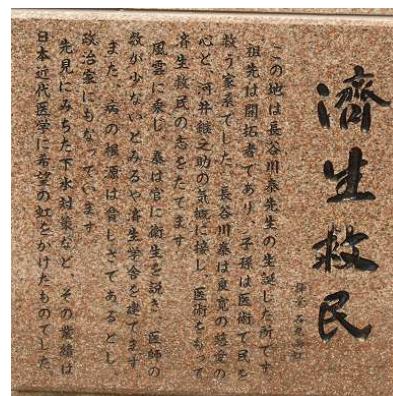 済生救民
この地は長谷川泰先生の生誕した所です
祖先は開拓者であり、子孫は医術で民を
救う家系でした 長谷川泰は良寛の慈愛の
心と、河井継之助の気概に接し 医術をもって
済生救民の志をたてます
風雲に乗じ 泰は官に衛生を説き 医師の
数が少ないとみるや済生学舎を建てます
また、病の根源は貧しさであるとし、
政治家にもなっています
先見にみちた下水対策など その業績は
日本近代医学に希望の虹をかけたものでした